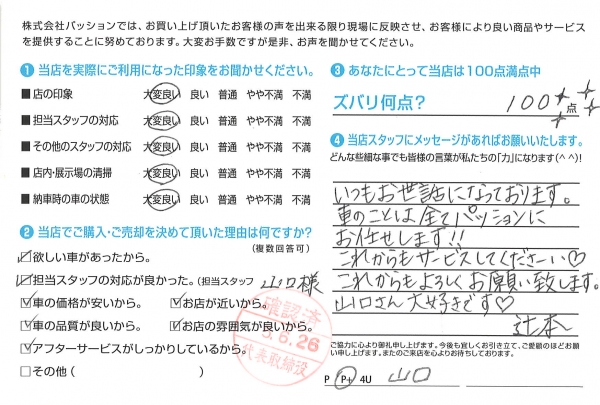 株式会社パッションでは、お買い上げ頂いたお客様の声を出来る限り現場に反映させ、お客様により良い商品やサービス
を提供することに努めております。大変お手数ですが是非、お声を聞かせてください。
1 当店を実際にご利用になった印象をお聞かせください。
■店の印象 大変良い 良い 普通 やや不満 不満
■担当スタッフの対応 大変良い 良い 普通 やや不満 不満
■その他のスタッフの対応 大変良い 良い 普通 やや不満 不満
■店内・展示場の清掃 大変良い 良い 普通 やや不満 不満
■納車時の車の状態 大変良い 良い 普通 やや不満 不満
2 当店でご購入・ご売却を決めて頂いた理由は何ですか?
(複数回答可)
☑欲しい車があったから。
☑担当スタッフの対応が良かった。(担当スタッフ 山口様
☑車の価格が安いから。 ☑お店が近いから。
☑車の品質が良いから。 ☑お店の雰囲気が良いから。
☑アフターサービスがしっかりしているから。
□その他( )
確認済
5.6.26
代表取締役
3 あなたにとって当店は100点満点中
ズバリ何点? 100 点
4 当店スタッフにメッセージがあればお願いいたします。
どんな些細な事でも皆様の言葉が私たちの「力」になります(^^)!
いつもお世話になっております。
車のことは全てパッションに
お任せします!!
これからもサービスしてくださーい♡
これからもよろしくお願い致します。
山口さん大好きです♡
辻本
ご協力に心より御礼申し上げます。今後も宜しくお引き立て、ご愛顧のほどお願
い申し上げます。またのご来店を心よりお待ちしております。
P P+ 4U 山口